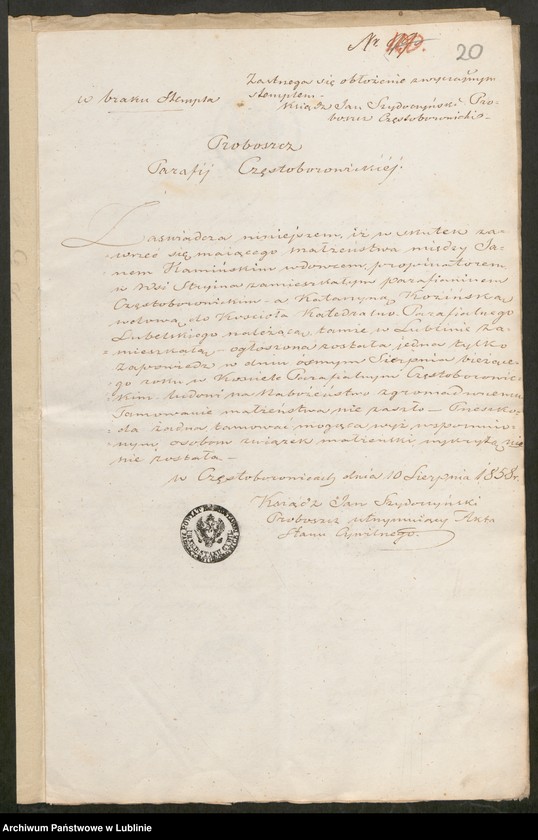 Nr 113.
20
w braku Stempla
Zastrzega się obłożenie zwyczajnym
stemplem
Ksiądz Jan Szydoczyński Pro-
boszcz Częstoborowicki
Proboszcz
Parafij Częstoborowickiéj.
Zaświadcza niniejszem, iż w skutek za-
wrzeć się mającego małżeństwa między Ja-
nem Kamińskim wdowcem, propinatorem
w Wsi Stryjna zamieszkałym parafianinem
Częstoborowickim – a Katarzyną Kozińską
wdową do Kościoła Katedralno Parafialnego
Lubelskiego należącą, tamże w Lublinie za-
mieszkałą – ogłoszona została jedna tylko
zapowiedź w dniu ósmym Sierpnia bieżące-
go roku w Kościele Parafialnym Częstoborowic-
kim ludowi na Nabożeństwo zgromadzonemu
Tamowanie małżeństwa nie zaszło – Przeszko-
da żadna tamować mogąca wyż wspomnio-
nym osobom związek małżeński wykrytą
nie została –
w Częstoborowicach dnia 10 Sierpnia 1858 r.
Ksiądz Jan Szydoczyński
Proboszcz utrzymujący Akta
Stanu Cywilnego.
Archiwum Państwowe w Lublinie